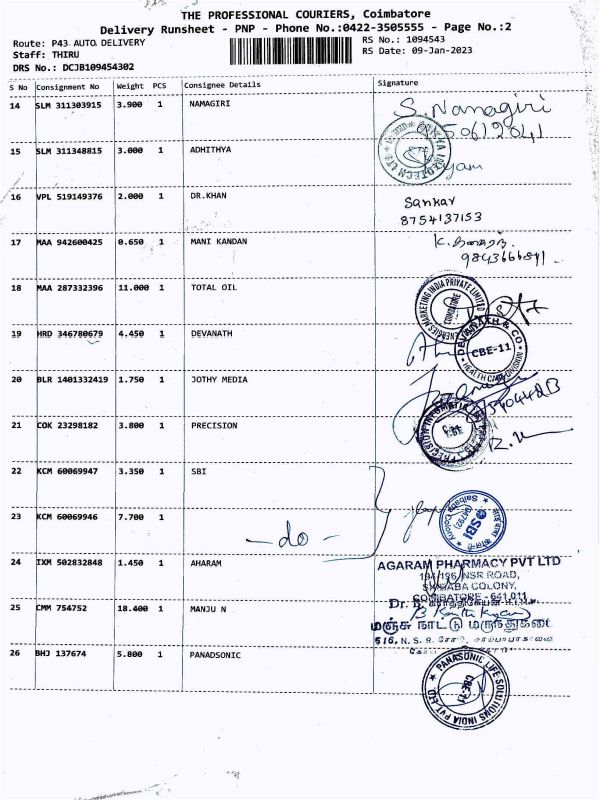 THE PROFESSIONAL COURIERS, Coimbatore
Delivery Runsheet - PNP - Phone No.:0422-3505555 - Page No.:2
Route: P43 AUTO DELIVERY
RS No.: 1094543
Staff: THIRU
RS Date: 09-Jan-2023
DRS No.: DCJB109454302
S No Consignment No Weight PCS Consignee Details Signature
14 SLM 311303915 3.900 1 NAMAGIRI S. Namagiri
15 SLM 311348815 3.000 1 ADHITHYA
16 VPL 519149376 2.000 1 DR.KHAN Sankar
8754137153
17 MAA 942600425 0.650 1 MANI KANDAN
18 MAA 287332396 11.000 1 TOTAL OIL
ENERGIES MARKETING INDIA PRIVATE LIMITED
COIMBATORE
19 HRD 346780679 4.450 1 DEVANATH
DEVANATH & CO
CBE-11
HEALTH CARE DIVISION
20 BLR 1401332419 1.750 1 JOTHY MEDIA
21 COK 23298182 3.800 1 PRECISION
22 KCM 60069947 3.350 1 SBI
SBI
23 KCM 60069946 7.700 1
-do-
24 IXM 502832848 1.450 1 AHARAM AGARAM PHARMACY PVT LTD
194/196, NSR ROAD,
SAIBABA COLONY,
COIMBATORE - 641 011
25 CMM 754752 18.400 1 MANJU N
மஞ்சு நாட்டு மருந்துகடை
516, N. S. R. ரோடு, சாய்பாபாகாலனி
26 BHJ 137674 5.800 1 PANADSONIC
PANASONIC LIFE SOLUTIONS INDIA PVT LTD
CBE-11